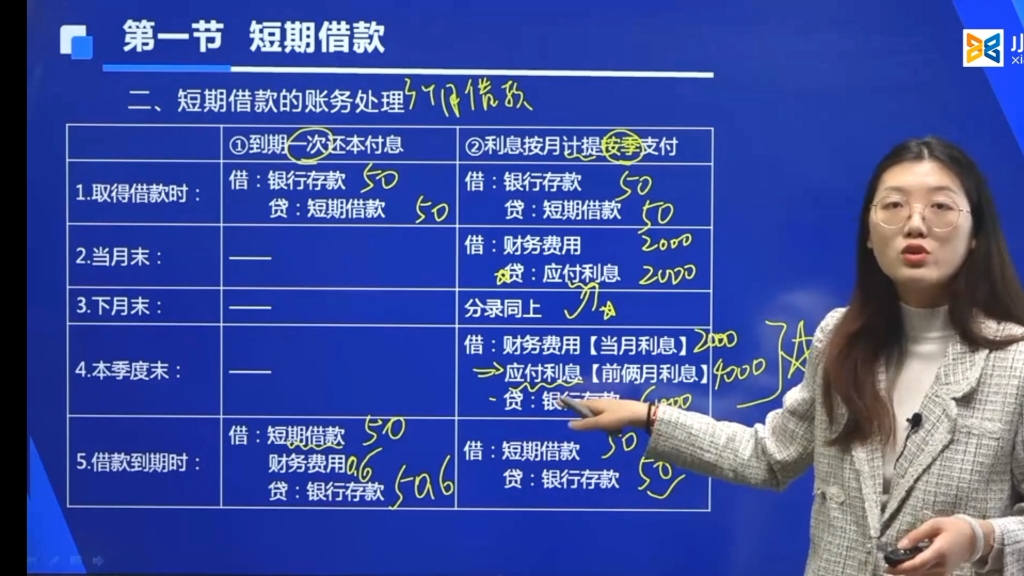 第一节 短期借款
小
xia
二、短期借款的账务处理 3个月借款
①到期一次还本付息
②利息按月计提按季支付
1.取得借款时：
借：银行存款 50
贷：短期借款 50
借：银行存款 50
贷：短期借款 50
2.当月末：
——
借：财务费用 2000
贷：应付利息 2000
3.下月末：
——
分录同上
4.本季度末：
——
借：财务费用【当月利息】 2000
应付利息【前俩月利息】 4000
贷：银行存款
5.借款到期时：
借：短期借款 50
财务费用 0.6
贷：银行存款 50.6
借：短期借款 50
贷：银行存款 50